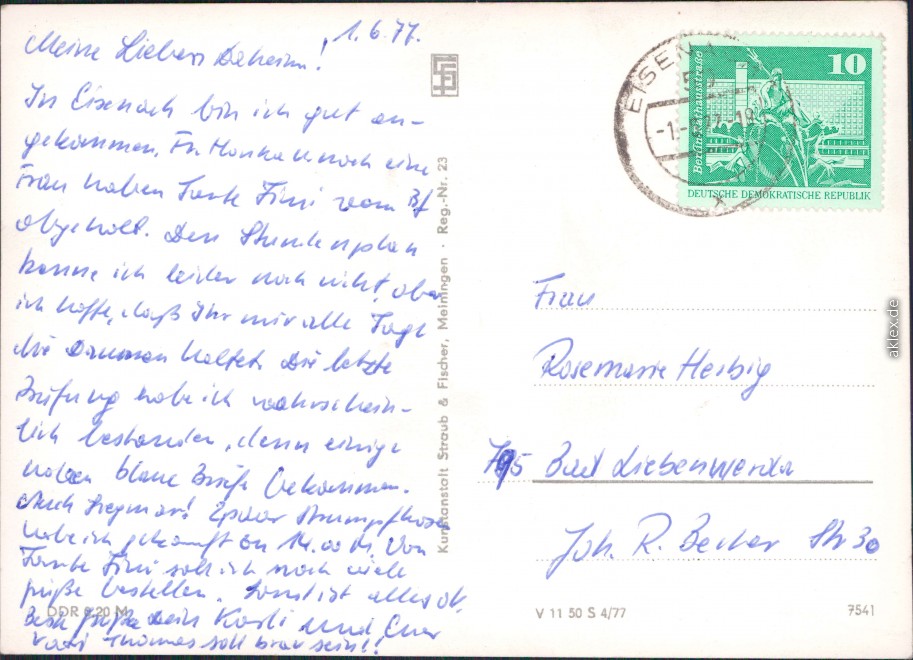 1.6.77.
Meine Lieben Daheim!
In Eisenach bin ich gut an-
gekommen. Fr. u. noch eine
Frau haben Tante Fini vom Bf
abgeholt. Den Stundenplan
kenne ich leider noch nicht, aber
ich hoffe, daß Ihr mir alle Tage
die Daumen haltet. Die letzte
Prüfung habe ich wahrschein-
lich bestanden, denn einige
haben blaue Briefe bekommen.
Auch Siegmar! 2 Paar Strumpfhosen
habe ich gekauft an 14.00 M. Von
Tante Fini soll ich noch viele
Grüße bestellen. Sonst ist alles ok.
Beste Grüße dein Karli und Euer
Vati Thomas soll brav sein!!
DDR 0.20 M
Kunstanstalt Straub & Fischer, Meiningen · Reg.-Nr. 23
EISENA
-1.-6.77-19
Berlin-Rathausstraße
10
DEUTSCHE DEMOKRATISCHE REPUBLIK
Frau
Rosemarie Herbig
795 Bad Liebenwerda
Joh. R. Becher Str 30
V 11 50 S 4/77
7541
aklex.de